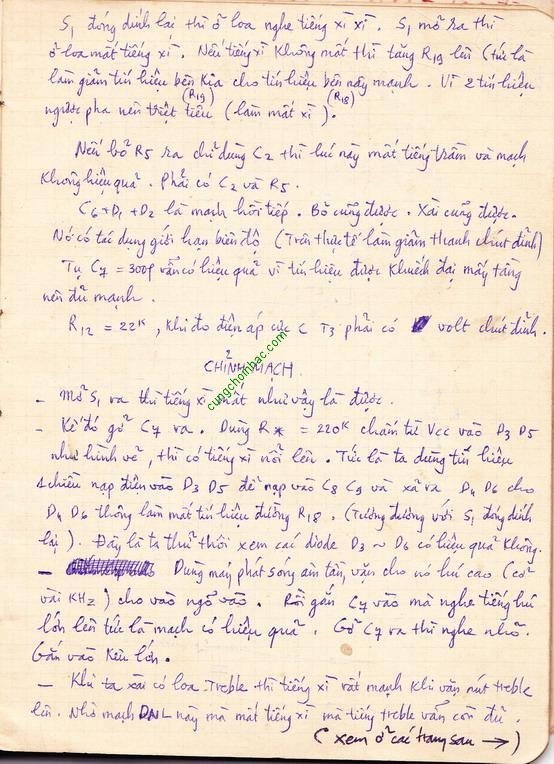 S₁ đóng dính lại thì ở loa nghe tiếng xì xì. S₁ mở ra thì
ở loa mất tiếng xì. Nếu tiếng xì không mất thì tăng R₁₉ lên (tức là
làm giảm tín hiệu bên kia cho tín hiệu bên này mạnh. Vì 2 tín hiệu
(R₁₉) (R₁₈)
ngược pha nên triệt tiêu (làm mất xì).
Nếu bỏ R₅ ra chỉ dùng C₂ thì lúc này mất tiếng trầm và mạch
không hiệu quả. Phải có C₂ và R₅.
C₆+D₁+D₂ là mạch hồi tiếp. Bỏ cũng được. Xài cũng được.
Nó có tác dụng giới hạn biên độ (Trên thực tế làm giảm thanh chút đỉnh)
Tụ C₇ = 300p vẫn có hiệu quả vì tín hiệu được khuếch đại mấy tầng
nên đủ mạnh.
R₁₂ = 22ᴷ, khi đo điện áp cực C T₃ phải có volt chút đỉnh.
CHỈNH MẠCH
cungchoinhac.com
- Mở S₁ ra thì tiếng xì mất như vậy là được.
- Kế đó gỡ C₇ ra. Dùng R* = 220ᴷ chấm từ Vcc vào D₃ D₅
như hình vẽ, thì có tiếng xì nổi lên. Tức là ta dùng tín hiệu
1 chiều nạp điện vào D₃ D₅ để nạp vào C₈ C₉ và xả ra D₄ D₆ cho
D₄ D₆ thông làm mất tín hiệu đường R₁₈. (Tương đương với S₁ đóng dính
lại). Đây là ta thử thôi xem các diode D₃ ~ D₆ có hiệu quả không.
- Dùng máy phát sóng âm tần, vặn cho nó hú cao (cỡ
vài KHz) cho vào ngõ vào. Rồi gắn C₇ vào mà nghe tiếng hú
lớn lên tức là mạch có hiệu quả. Gỡ C₇ ra thì nghe nhỏ.
Gắn vào kêu lớn.
- Khi ta xài có loa Treble thì tiếng xì rất mạnh khi vặn nút treble
lên. Nhờ mạch DNL này mà mất tiếng xì mà tiếng treble vẫn còn đủ.
(xem ở các trang sau →)